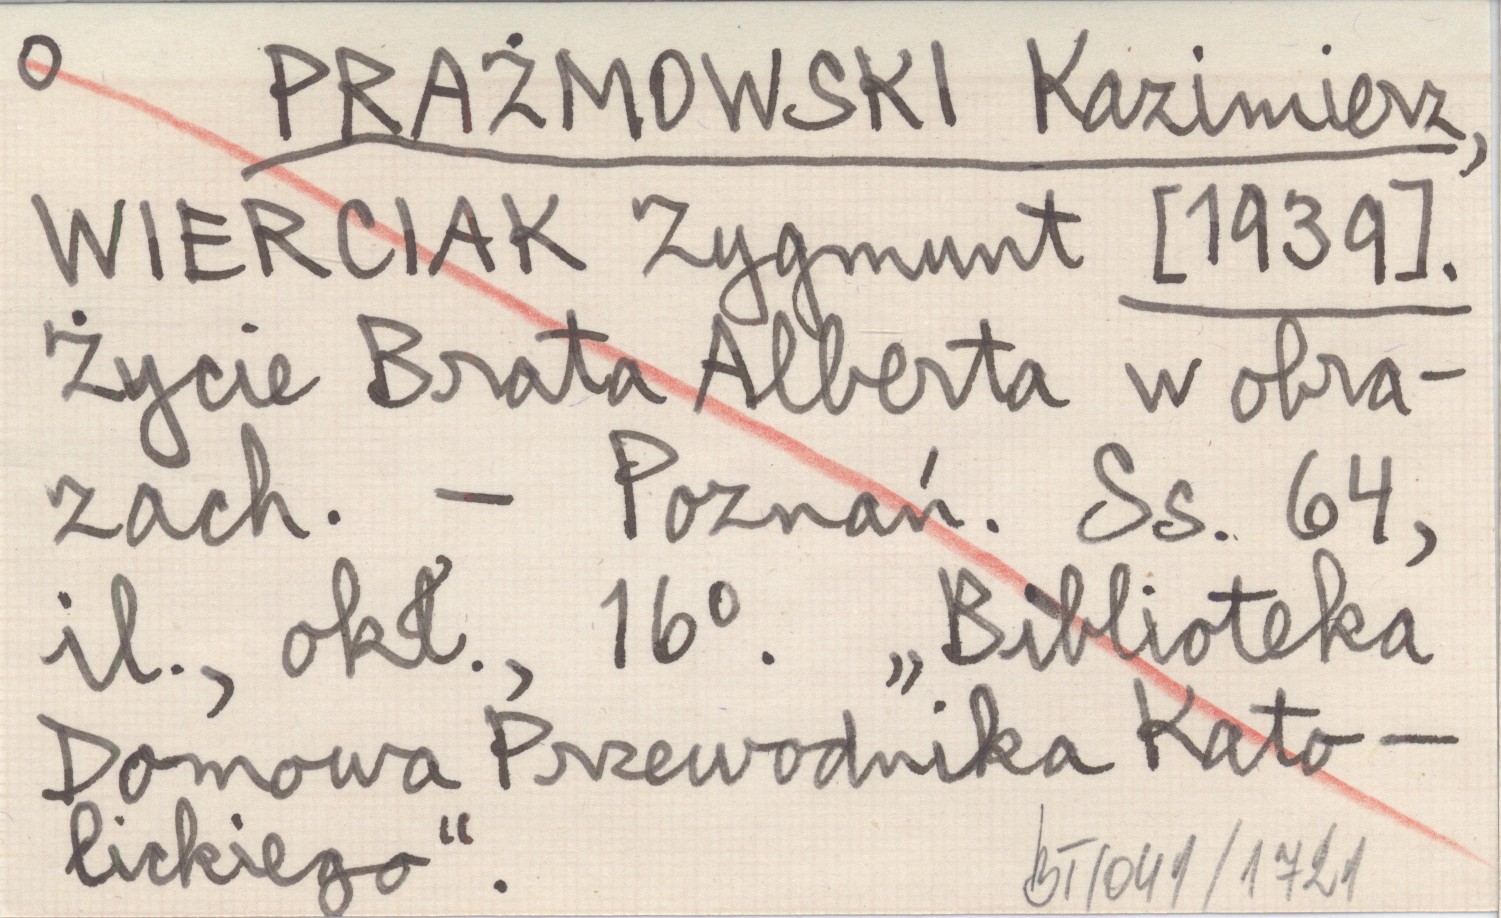 o PRAŻMOWSKI Kazimierz,
WIERCIAK Zygmunt [1939].
Życie Brata Alberta w obra-
zach. — Poznań. Ss. 64,
il., okł., 16°. „Biblioteka
Domowa Przewodnika Kato-
lickiego“.
BT/041/1721